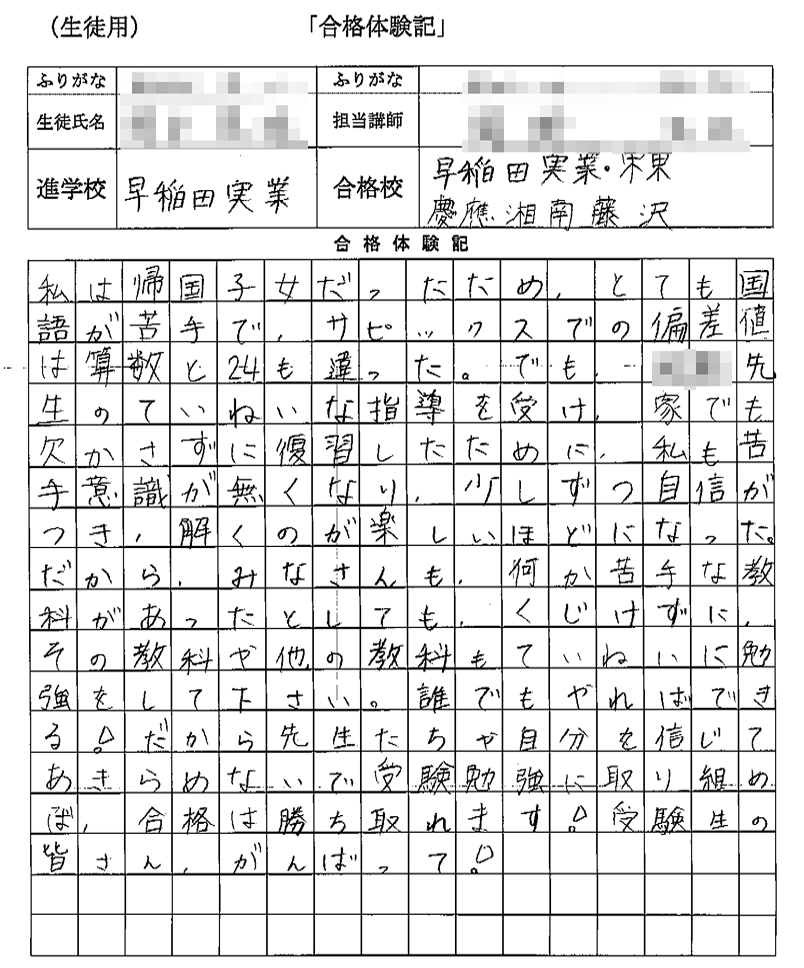 （生徒用）　「合格体験記」
ふりがな　ふりがな
生徒氏名　担当講師
進学校　早稲田実業　合格校　早稲田実業・本果
慶應湘南藤沢
合格体験記
私は帰国子女だったため、とても国
語が苦手で、サピックスでの偏差値
は算数と24も違った。でも、先
生のていねいな指導を受け、家でも
欠かさずに復習したために、私も苦
手意識が無くなり、少しずつ自信が
つき、解くのが楽しいほどになった。
だから、みなさんも、何か苦手な教
科があったとしても、くじけずに、
その教科や他の教科もていねいに勉
強をして下さい。誰でもやればでき
る！だから先生たちや自分を信じて
あきらめないで受験勉強に取り組め
ば、合格は勝ち取れます！受験生の
皆さん、がんばって！